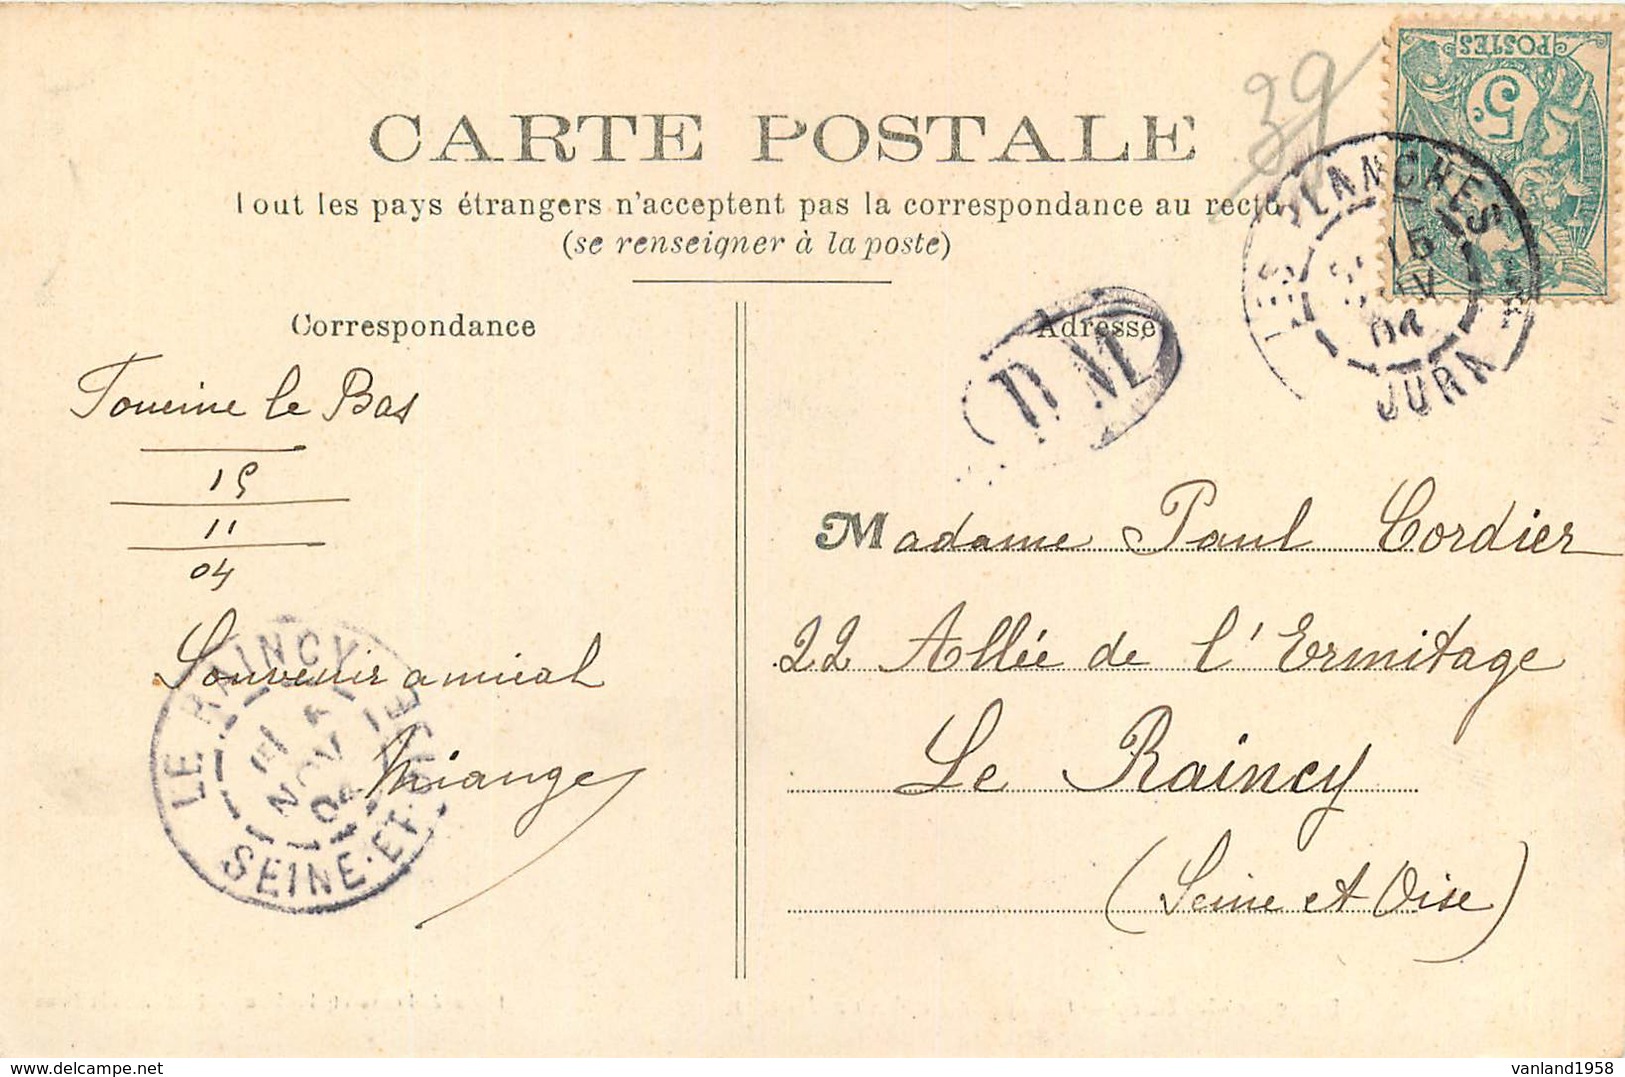 CARTE POSTALE
Tout les pays étrangers n'acceptent pas la correspondance au recto
(se renseigner à la poste)
Correspondance
Adresse
39
POSTES
5c
LES PLANCHES
15
04
JURA
BM
Foncine le Bas
15
11
04
Souvenir amical
Madame Paul Cordier
22 Allée de l'Ermitage
Le Raincy
(Seine et Oise)
LE RAINCY
NOV
04
SEINE-ET-OISE
www.delcampe.net
vanland1958